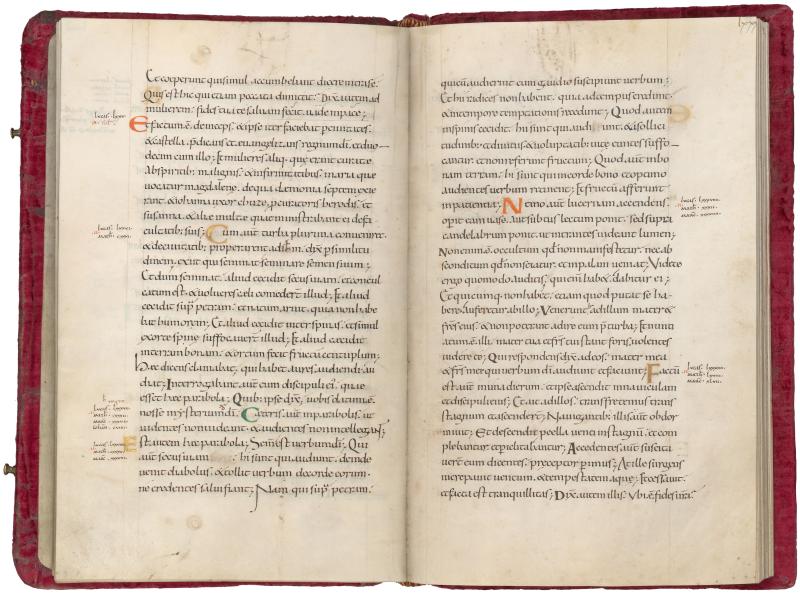 Et coeperunt qui simul accumbebant dicere intra se.
Quis est hic qui etiam peccata dimittit. Dix autem ad
mulierem; fides tua te saluam fecit. uade in pace;
Et factum e deinceps. & ipse iter faciebat per ciuitates.
& castella. predicans et euangelizans regnum di. et duo
decim cum illo; Et mulieres aliq; quae erant curatae
ab spiritib; malignis. & infirmitatibus. maria quae
uocatur magdalene. de qua demonia septem exie
rant. & iohanna uxor chuza; procuratoris herodis. et
susanna. & aliae multae quae ministrabant ei de fa
cultatib; suis; Cum aut turba plurima conueniret.
& de ciuitatib; properarent ad eum. dix p similitu
dinem; exiit qui seminat seminare semen suum;
Et dum seminat. aliud cecidit secus uiam. et concul
catum est. & uolucres caeli comeder illud; Et aliud
cecidit sup petram. et natum aruit. quia non habe
bat humorem; Et aliud cecidit inter spinas. et simul
exortae spinae suffocauer illud; Et aliud cecidit
in terram bonam. & ortum fecit fructu centuplum;
Haec dicens clamabat. qui habet aures audiendi au
diat; Interrogabant aut eum discipuli ei. quae
esset haec parabola; Quib: ipse dix. uobis datum e
nosse mysterium di. Ceteris aut in parabolis. ut
uidentes non uideant. & audientes non intellegant;
Est autem haec parabola; Semen est uerbum di; Qui
aut secus uiam hi sunt qui audiunt. deinde
uenit diabolus. & tollit uerbum de corde eorum.
ne credentes salui fiant; Nam qui sup petram.
qui cum audierint cum gaudio suscipiunt uerbum;
Et hi radices non habent. quia ad tempus credunt.
& in tempore temptationis recedunt; Quod autem
in spinis cecidit. hi sunt qui audi erunt. & a sollici
tudinib; & diuitiis. & uoluptatib; uitae euntes suffo
cantur. et non referunt fructum; Quod aut in bo
nam terram. hi sunt qui in corde bono et optimo
audientes uerbum retinent; Et fructum afferunt
in patientia; Nemo aut lucernam accendens.
operit eam uase. aut subtus lectum ponit. sed supra
candelabrum ponit. ut intrantes uideant lumen;
Non enim e. occultum qd non manifestetur. nec ab
sconditum qd non sciatur. et in palam ueniat; Videte
ergo quomodo auditis. qui enim habet dabitur ei;
Et quicumq; non habet. etiam quod putat se ha
bere. auferetur ab illo; Venerunt ad illum mater et
frs eius. & non poterant adire eum p turba; Et nunti
atum e illi. mater tua et frs tui stant foris. uolentes
uidere te; Qui respondens dix ad eos. mater mea
et frs mei qui uerbum di audiunt et faciunt; Factu
est aut in una dierum. et ipse ascendit in nauiculam
et discipuli eius; Et ait ad illos. transfretemus trans
stagnum et ascender; Nauigantib; illis aut obdor
miuit; Et descendit procella uenti in stagnu. et com
plebantur. et periclitabantur; Accedentes aut suscita
uer eum dicentes. preceptor perimus; At ille surgens
increpauit uentum. & tempestatem aquae; Et cessauit.
et facta est tranquillitas; Dix autem illis. Vbi e fides ura.